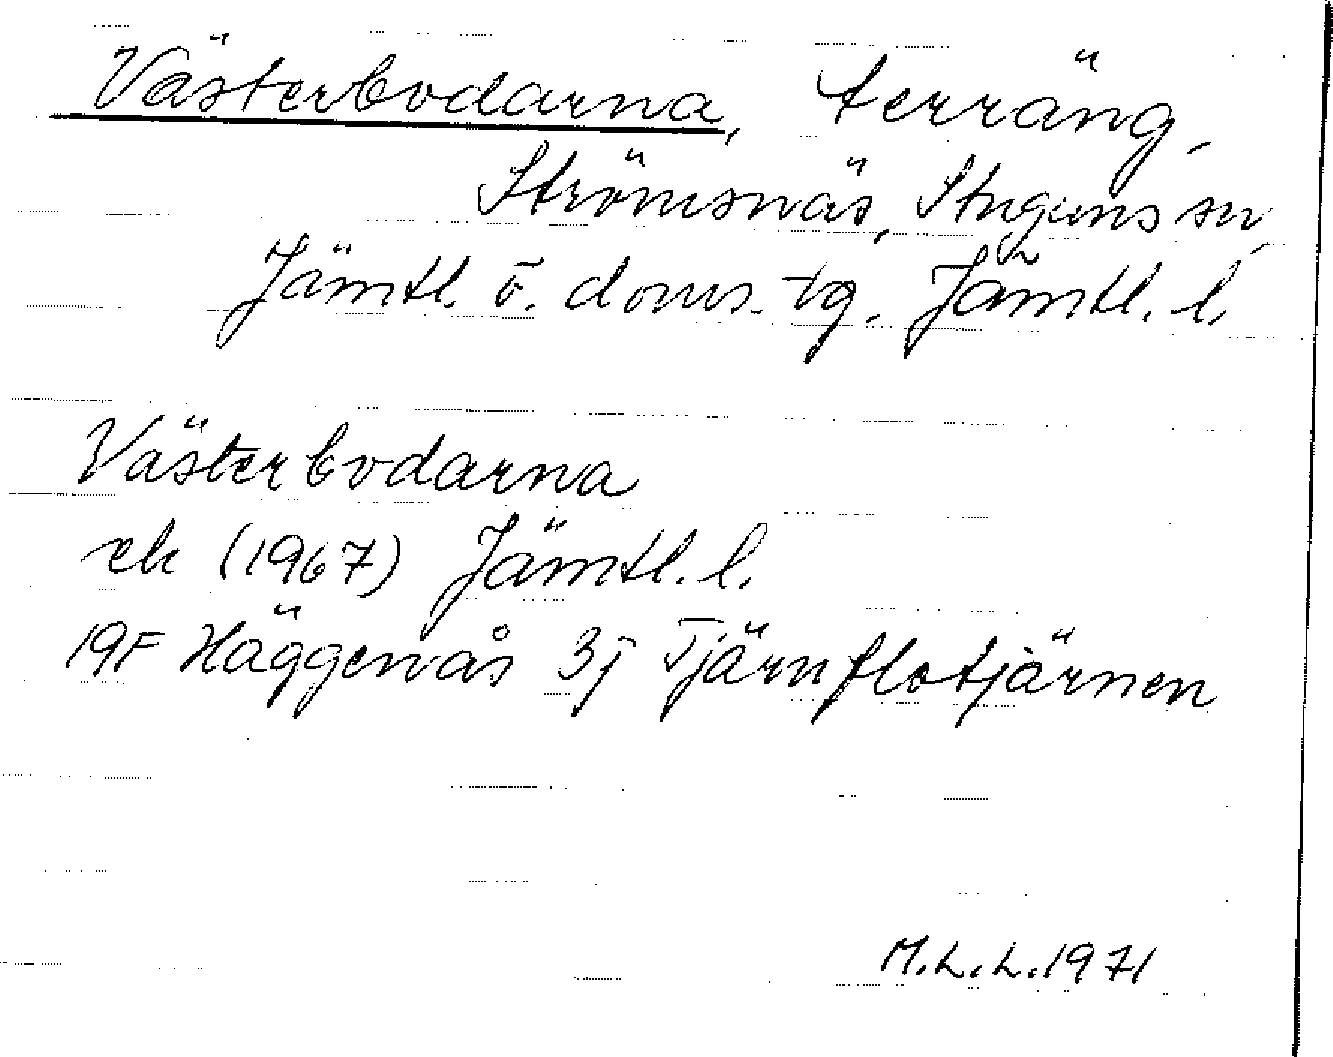 Västerbodarna, terräng,
Strömsnäs, Stuguns sn,
Jämtl. ö. doms. tg. Jämtl. l.
Västerbodarna
ek (1967) Jämtl. l.
19F Häggenås 3j Tjärnflotjärnen
M.L.L. 1971